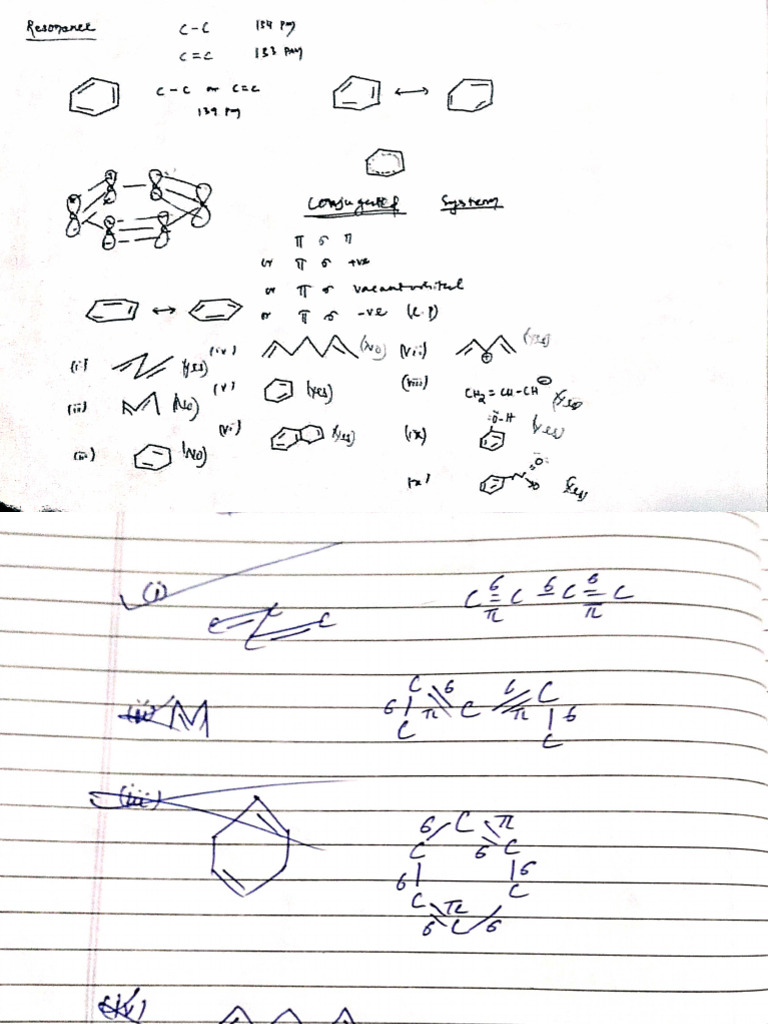 Resonance C-C 154 pm
C=C 133 pm
C-C or C=C
139 pm
Conjugated System
π σ π
or π σ +ve
or π σ vacant orbital
or π σ -ve (l.p)
(i) (yes) (iv) (No) (vii) (yes)
(ii) (No) (v) (yes) (viii) CH2=CH-CH⊖ (yes)
(iii) (No) (vi) (yes) (ix) :Ö-H (yes)
(x) (yes)
(i) C C C
C 6 = π C 6 - C 6 = π C
(ii) C 6 6 C
6 C π C π C 6
(iii)
6 C π
C 6 C
6 6
C π C
6 C 6
(iv)